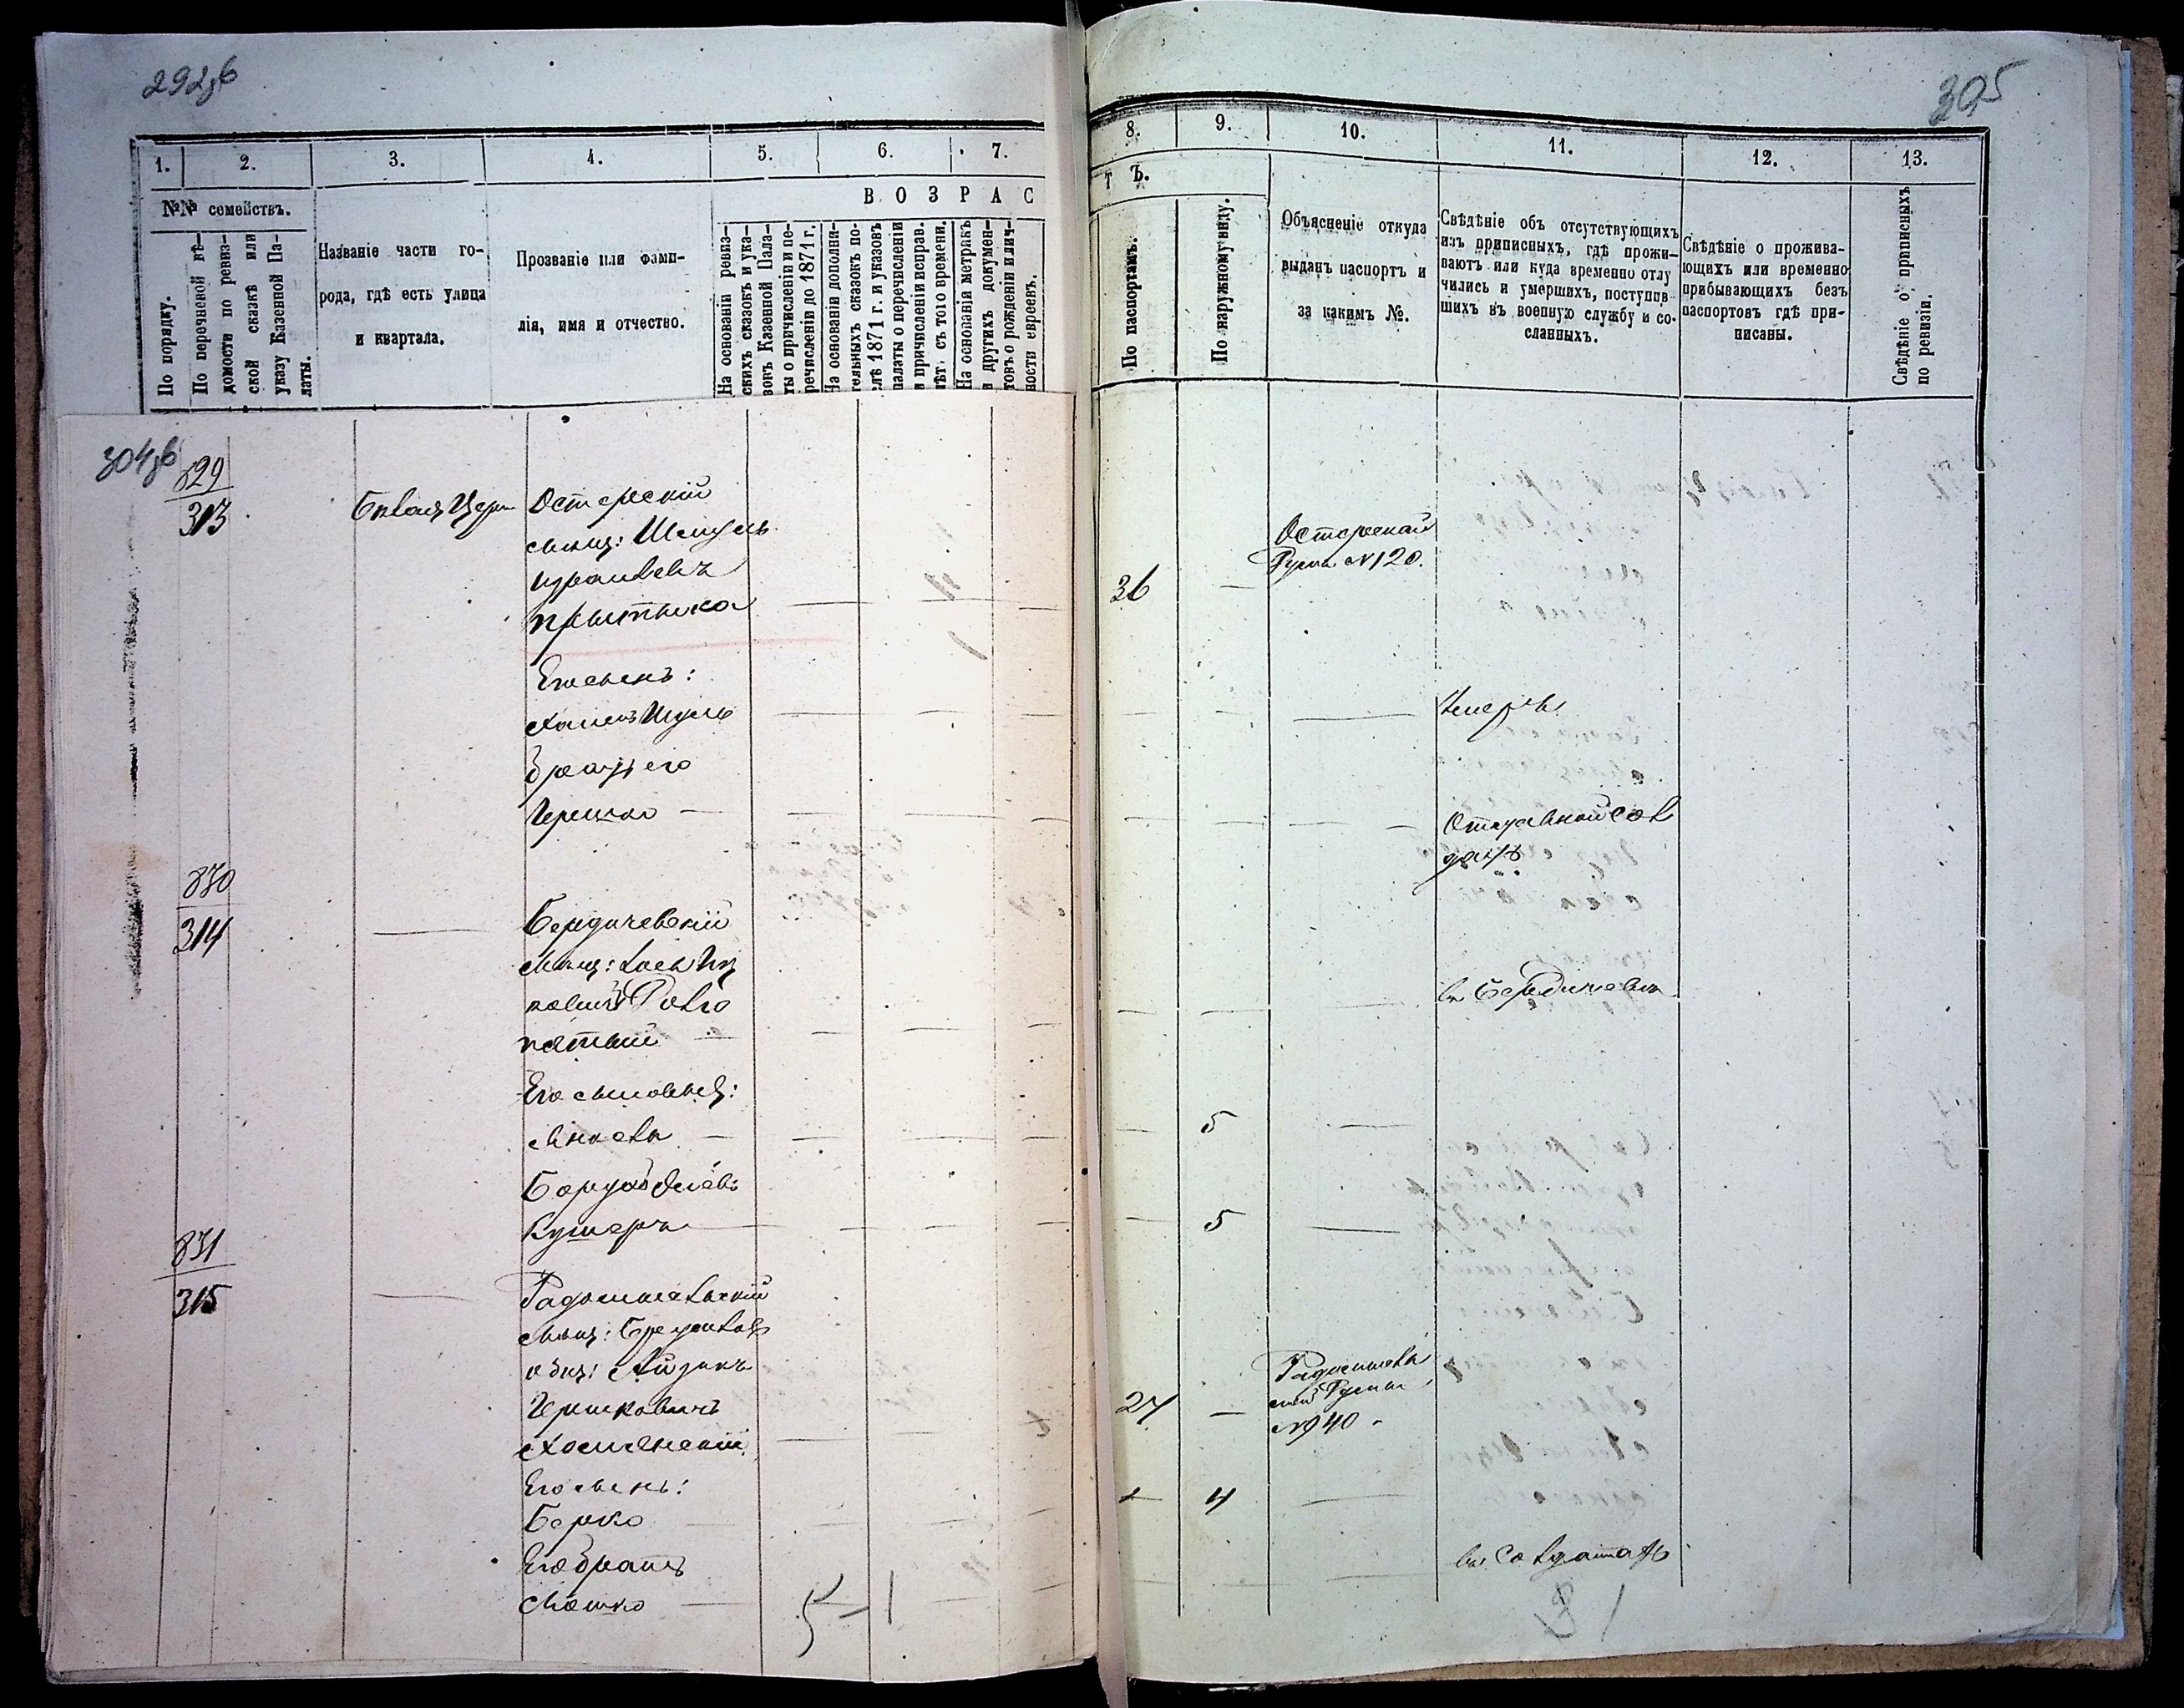 292об
305
1. 2. 3. 4. 5. 6. 7.
8. 9. 10. 11. 12. 13.
№№ семействъ.
В О З Р А С
Т Ъ.
По порядку.
По перечневой вѣ-
домости по ревиз-
ской сказкѣ или
указу Казенной Па-
латы.
Названіе части го-
рода, гдѣ есть улица
и квартала.
Прозваніе или фами-
лія, имя и отчество.
На основаніи ревиз-
скихъ сказокъ и ука-
зовъ Казенной Пала-
ты о причисленіи и пе-
речисленіи до 1871 г.
На основаніи дополни-
тельныхъ сказокъ по-
слѣ 1871 г. и указовъ
палаты о перечисленіи
и причисленіи исправ.
лѣт. съ того времени.
На основаніи метрикъ
и другихъ докумен-
товъ о рожденіи и лич-
ности евреевъ.
По паспортамъ.
По наружному виду.
Объясненіе откуда
выданъ паспортъ и
за какимъ №.
Свѣдѣніе объ отсутствующихъ
изъ приписныхъ, гдѣ прожи-
ваютъ или куда временно отлу
чились и умершихъ, поступив-
шихъ въ военную службу и со-
сланныхъ.
Свѣдѣніе о прожива-
ющихъ или временно
прибывающихъ безъ
паспортовъ гдѣ при-
писаны.
Свѣдѣніе о приписныхъ
по ревизіи.
304об
829
313
Остерскій
мѣщ: Шмуль
Израилевъ
Прытыка
36
Остерской
Думы №120.
Его сынъ:
Умеръ
братъ его
Гершко
Отставной сол
датъ
830
314
Бердичевскій
мѣщ:
въ Бердичевѣ
Его сыновья:
Янкель
5
Кушеръ
5
831
315
Радомысльскій
мѣщ:
общ: Айзикъ
Гершковичъ
27
№940
Его сынъ:
Берко
4
Его братъ
Мошко
въ Солдатахъ